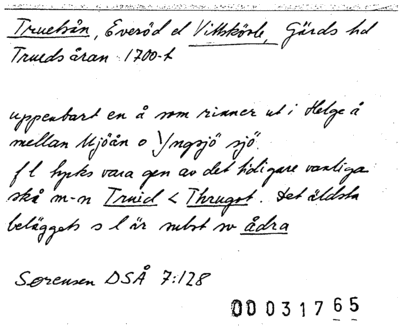 Truedsån, Everöd el Vittskövle, Gärds hd
Trueds åran 1700-t
uppenbart en å som rinner ut i Helge å
mellan Mjöån o Yngsjö sjö.
f l tycks vara gen av det tidigare vanliga
skå m-n Truid < Thrugot. Det äldsta
beläggets s l är subst sv ådra
Sørensen DSÅ 7:128
00031765